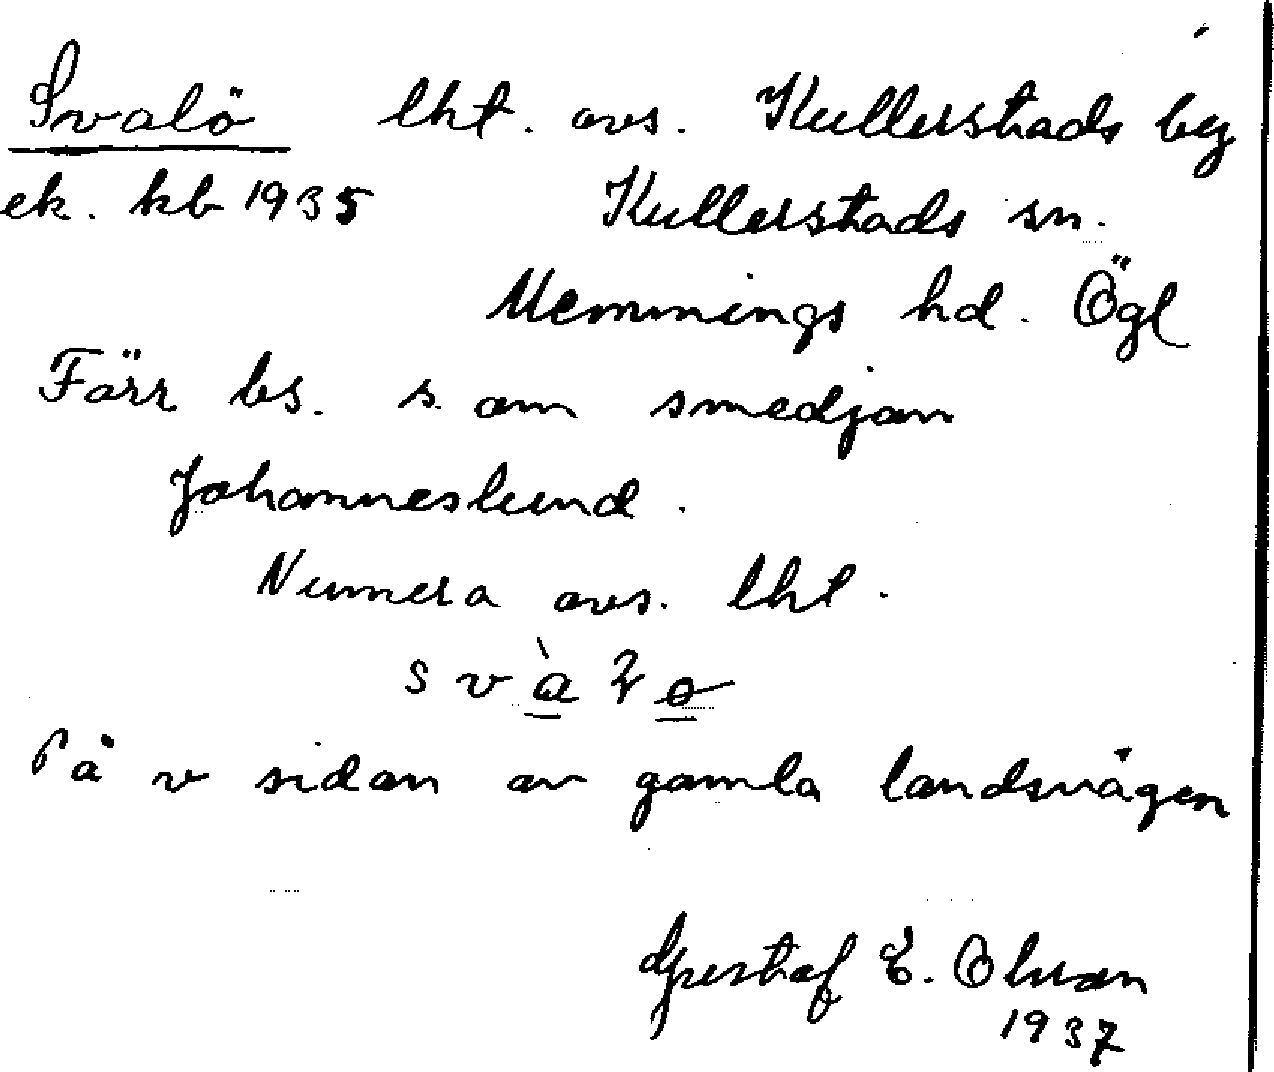 Svalö lht. avs. Kullerstads by
ek. kb 1935 Kullerstads sn.
Memmings hd. Ögl
Förr bs. s. om smedjan
Johanneslund.
Numera avs. lht.
På v sidan av gamla landsvägen
Gustaf E. Olson
1937